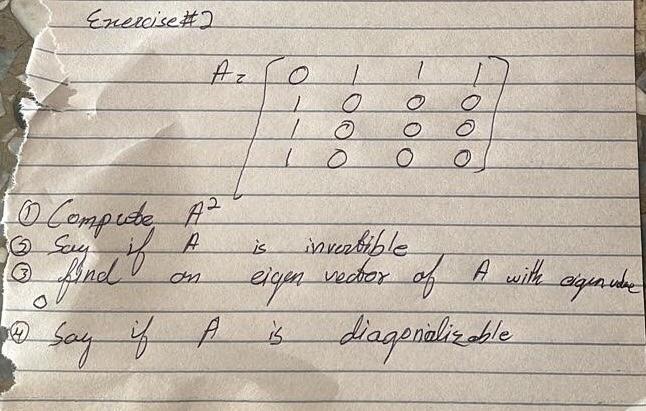 Exercise #2
A = 0 1 1 1
1 0 0 0
1 0 0 0
1 0 0 0
① Compute A²
② Say if A is invertible
③ find an eigen vector of A with eigenvalue
0
④ Say if A is diagonalizable